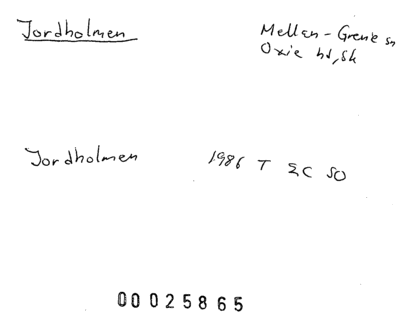 Jordholmen
Mellan-Grevie sn
Oxie hd, Sk
Jordholmen 1986 T ΣC SO
00025865